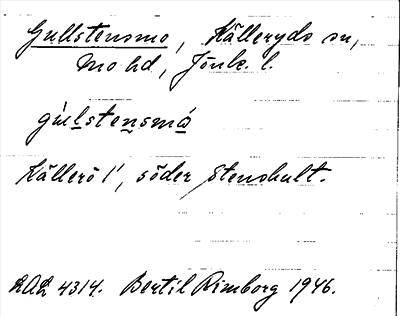 Gullstensmo, Källeryds sn,
Mo hd, Jönk. l.
gu̇l̲sten̲smȧ̲
Källerö 1', söder Stenshult.
LAL 4314. Bertil Rimborg 1946.